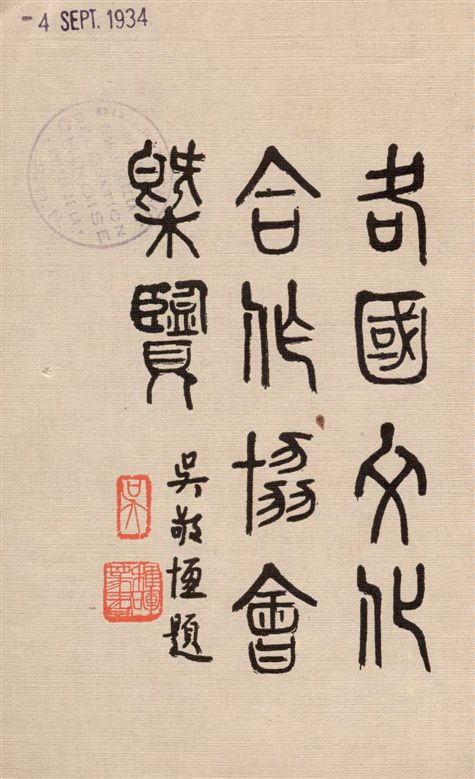 -4 SEPT. 1934
各國文化
合作協會
槩覽
吳敬恆題